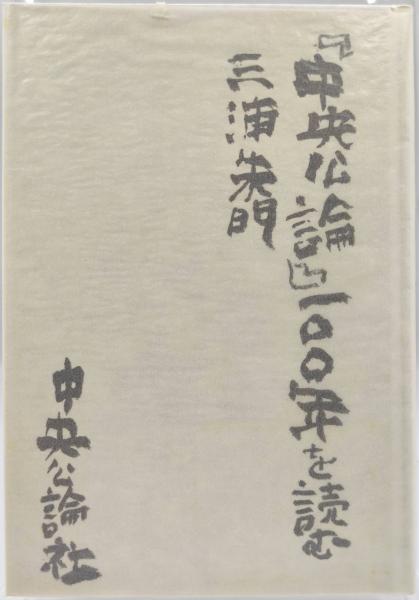 『中央公論』一〇〇年を読む
三浦朱門
中央公論社